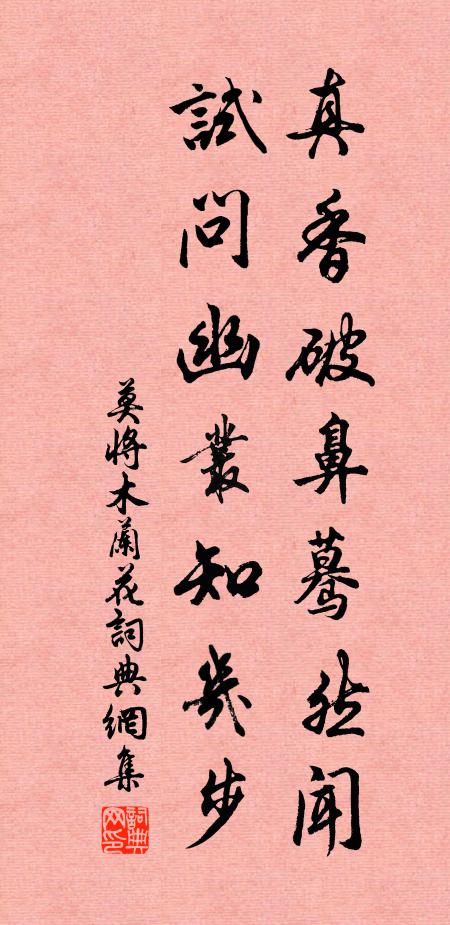 真香破鼻蓦然闻
試問幽叢知幾步
莫將木蘭花詞典網集
詞典網印